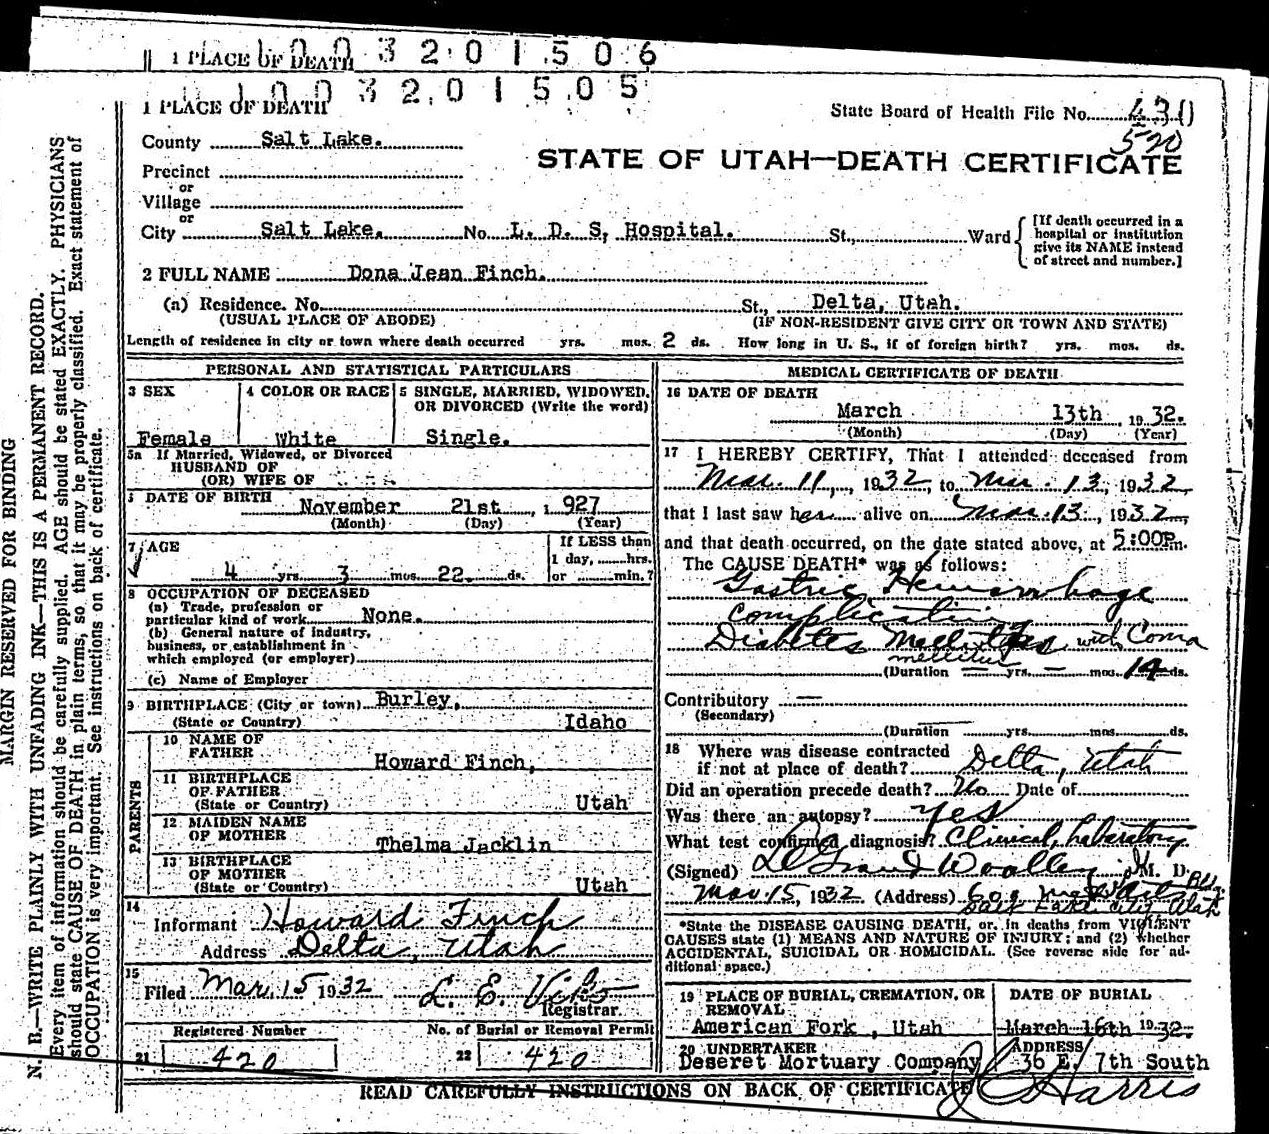 1 PLACE OF DEATH
1 0 0 3 2 0 1 5 0 6
1 0 0 3 2 0 1 5 0 5
1 PLACE OF DEATH
State Board of Health File No. 430
520
County Salt Lake.
STATE OF UTAH—DEATH CERTIFICATE
Precinct
or
Village
or
City Salt Lake. No. L. D. S, Hospital. St., Ward
[If death occurred in a hospital or institution give its NAME instead of street and number.]
2 FULL NAME Dona Jean Finch.
(a) Residence. No. St., Delta, Utah.
(USUAL PLACE OF ABODE) (IF NON-RESIDENT GIVE CITY OR TOWN AND STATE)
Length of residence in city or town where death occurred yrs. mos. 2 ds. How long in U. S., if of foreign birth? yrs. mos. ds.
PERSONAL AND STATISTICAL PARTICULARS
3 SEX
Female
4 COLOR OR RACE
White
5 SINGLE, MARRIED, WIDOWED, OR DIVORCED (Write the word)
Single.
5a If Married, Widowed, or Divorced
HUSBAND OF
(OR) WIFE OF
DATE OF BIRTH November 21st, 1927
(Month) (Day) (Year)
7 AGE
4 yrs. 3 mos. 22 ds.
If LESS than
1 day, hrs.
or min.?
8 OCCUPATION OF DECEASED
(a) Trade, profession or
particular kind of work None.
(b) General nature of industry,
business, or establishment in
which employed (or employer)
(c) Name of Employer
9 BIRTHPLACE (City or town) Burley,
(State or Country) Idaho
PARENTS
10 NAME OF
FATHER
Howard Finch,
11 BIRTHPLACE
OF FATHER
(State or Country) Utah
12 MAIDEN NAME
OF MOTHER
Thelma Jacklin
13 BIRTHPLACE
OF MOTHER
(State or Country) Utah
14
Informant Howard Finch
Address Delta, Utah
15
Filed Mar. 15 1932 L. E.
Registrar
Registered Number
21 420
No. of Burial or Removal Permit
22 420
MEDICAL CERTIFICATE OF DEATH
16 DATE OF DEATH
March 13th 1932.
(Month) (Day) (Year)
17 I HEREBY CERTIFY, That I attended deceased from
Mar. 11, 1932, to Mar. 13, 1932,
that I last saw her alive on Mar. 13, 1932,
and that death occurred, on the date stated above, at 5:00P.m.
The CAUSE DEATH* was as follows:
Gastric Hemorrhage
complicating
Diabetes Mellitus with Coma
mellitus
(Duration — yrs. — mos. 14 ds.
Contributory —
(Secondary)
(Duration yrs. mos. ds.
18 Where was disease contracted
if not at place of death? Delta, Utah
Did an operation precede death? No Date of
Was there an autopsy? yes
What test confirmed diagnosis? Clinical, Laboratory
(Signed) LeGrand Woolley M. D.
Mar. 15, 1932 (Address) Bldg.
Salt Lake City Utah
*State the DISEASE CAUSING DEATH, or, in deaths from VIOLENT
CAUSES state (1) MEANS AND NATURE OF INJURY; and (2) whether
ACCIDENTAL, SUICIDAL OR HOMICIDAL. (See reverse side for ad-
ditional space.)
19 PLACE OF BURIAL, CREMATION, OR
REMOVAL
American Fork, Utah
DATE OF BURIAL
March 16th 1932.
20 UNDERTAKER
Deseret Mortuary Company
ADDRESS
36 E. 7th South
Harris
READ CAREFULLY INSTRUCTIONS ON BACK OF CERTIFICATE
MARGIN RESERVED FOR BINDING
N. B.—WRITE PLAINLY WITH UNFADING INK—THIS IS A PERMANENT RECORD.
Every item of information should be carefully supplied. AGE should be stated EXACTLY. PHYSICIANS
should state CAUSE OF DEATH in plain terms, so that it may be properly classified. Exact statement of
OCCUPATION is very important. See instructions on back of certificate.